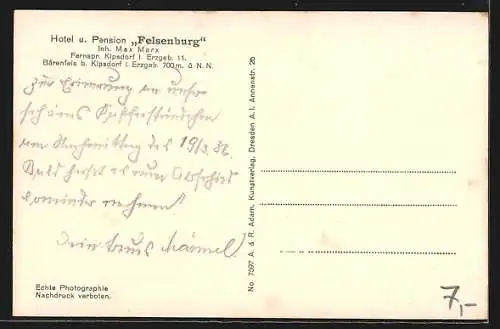 Hotel u. Pension „Felsenburg“
Inh. Max Marx
Fernspr. Kipsdorf i. Erzgeb. 11.
Bärenfels b. Kipsdorf i. Erzgeb. 700 m. ü. N. N.
Zur Erinnerung an unser
schönes Kaffeestündchen
am Nachmittag des 19/3. 36.
Bald heisst es nun Abschied
nehmen!
Dein
Echte Photographie
Nachdruck verboten.
No. 7597 A. & R. Adam, Kunstverlag, Dresden A. I, Annenstr. 25
7,-